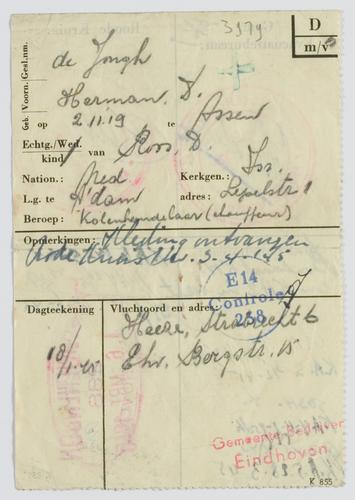 3979
D
m/v
Gesl.nm. de Jongh
Voorn. Herman. D.
Geb. op 2.11.19 te Assen
Echtg./Wed. kind van Roos, D.
Nation.: Ned Kerkgen.: Isr.
L.g. te A'dam adres: Lepelstr 1
Beroep: Kolenhandelaar (chauffeur)
Opmerkingen: Kleding ontvangen
Rode Kruis 3-4-45
E14
Controle
238
Dagteekening Vluchtoord en adres:
18/1-45 Heeze, Strabrecht 6
Ehv. Bergstr. 15
Gemeente
Eindhoven
K 855